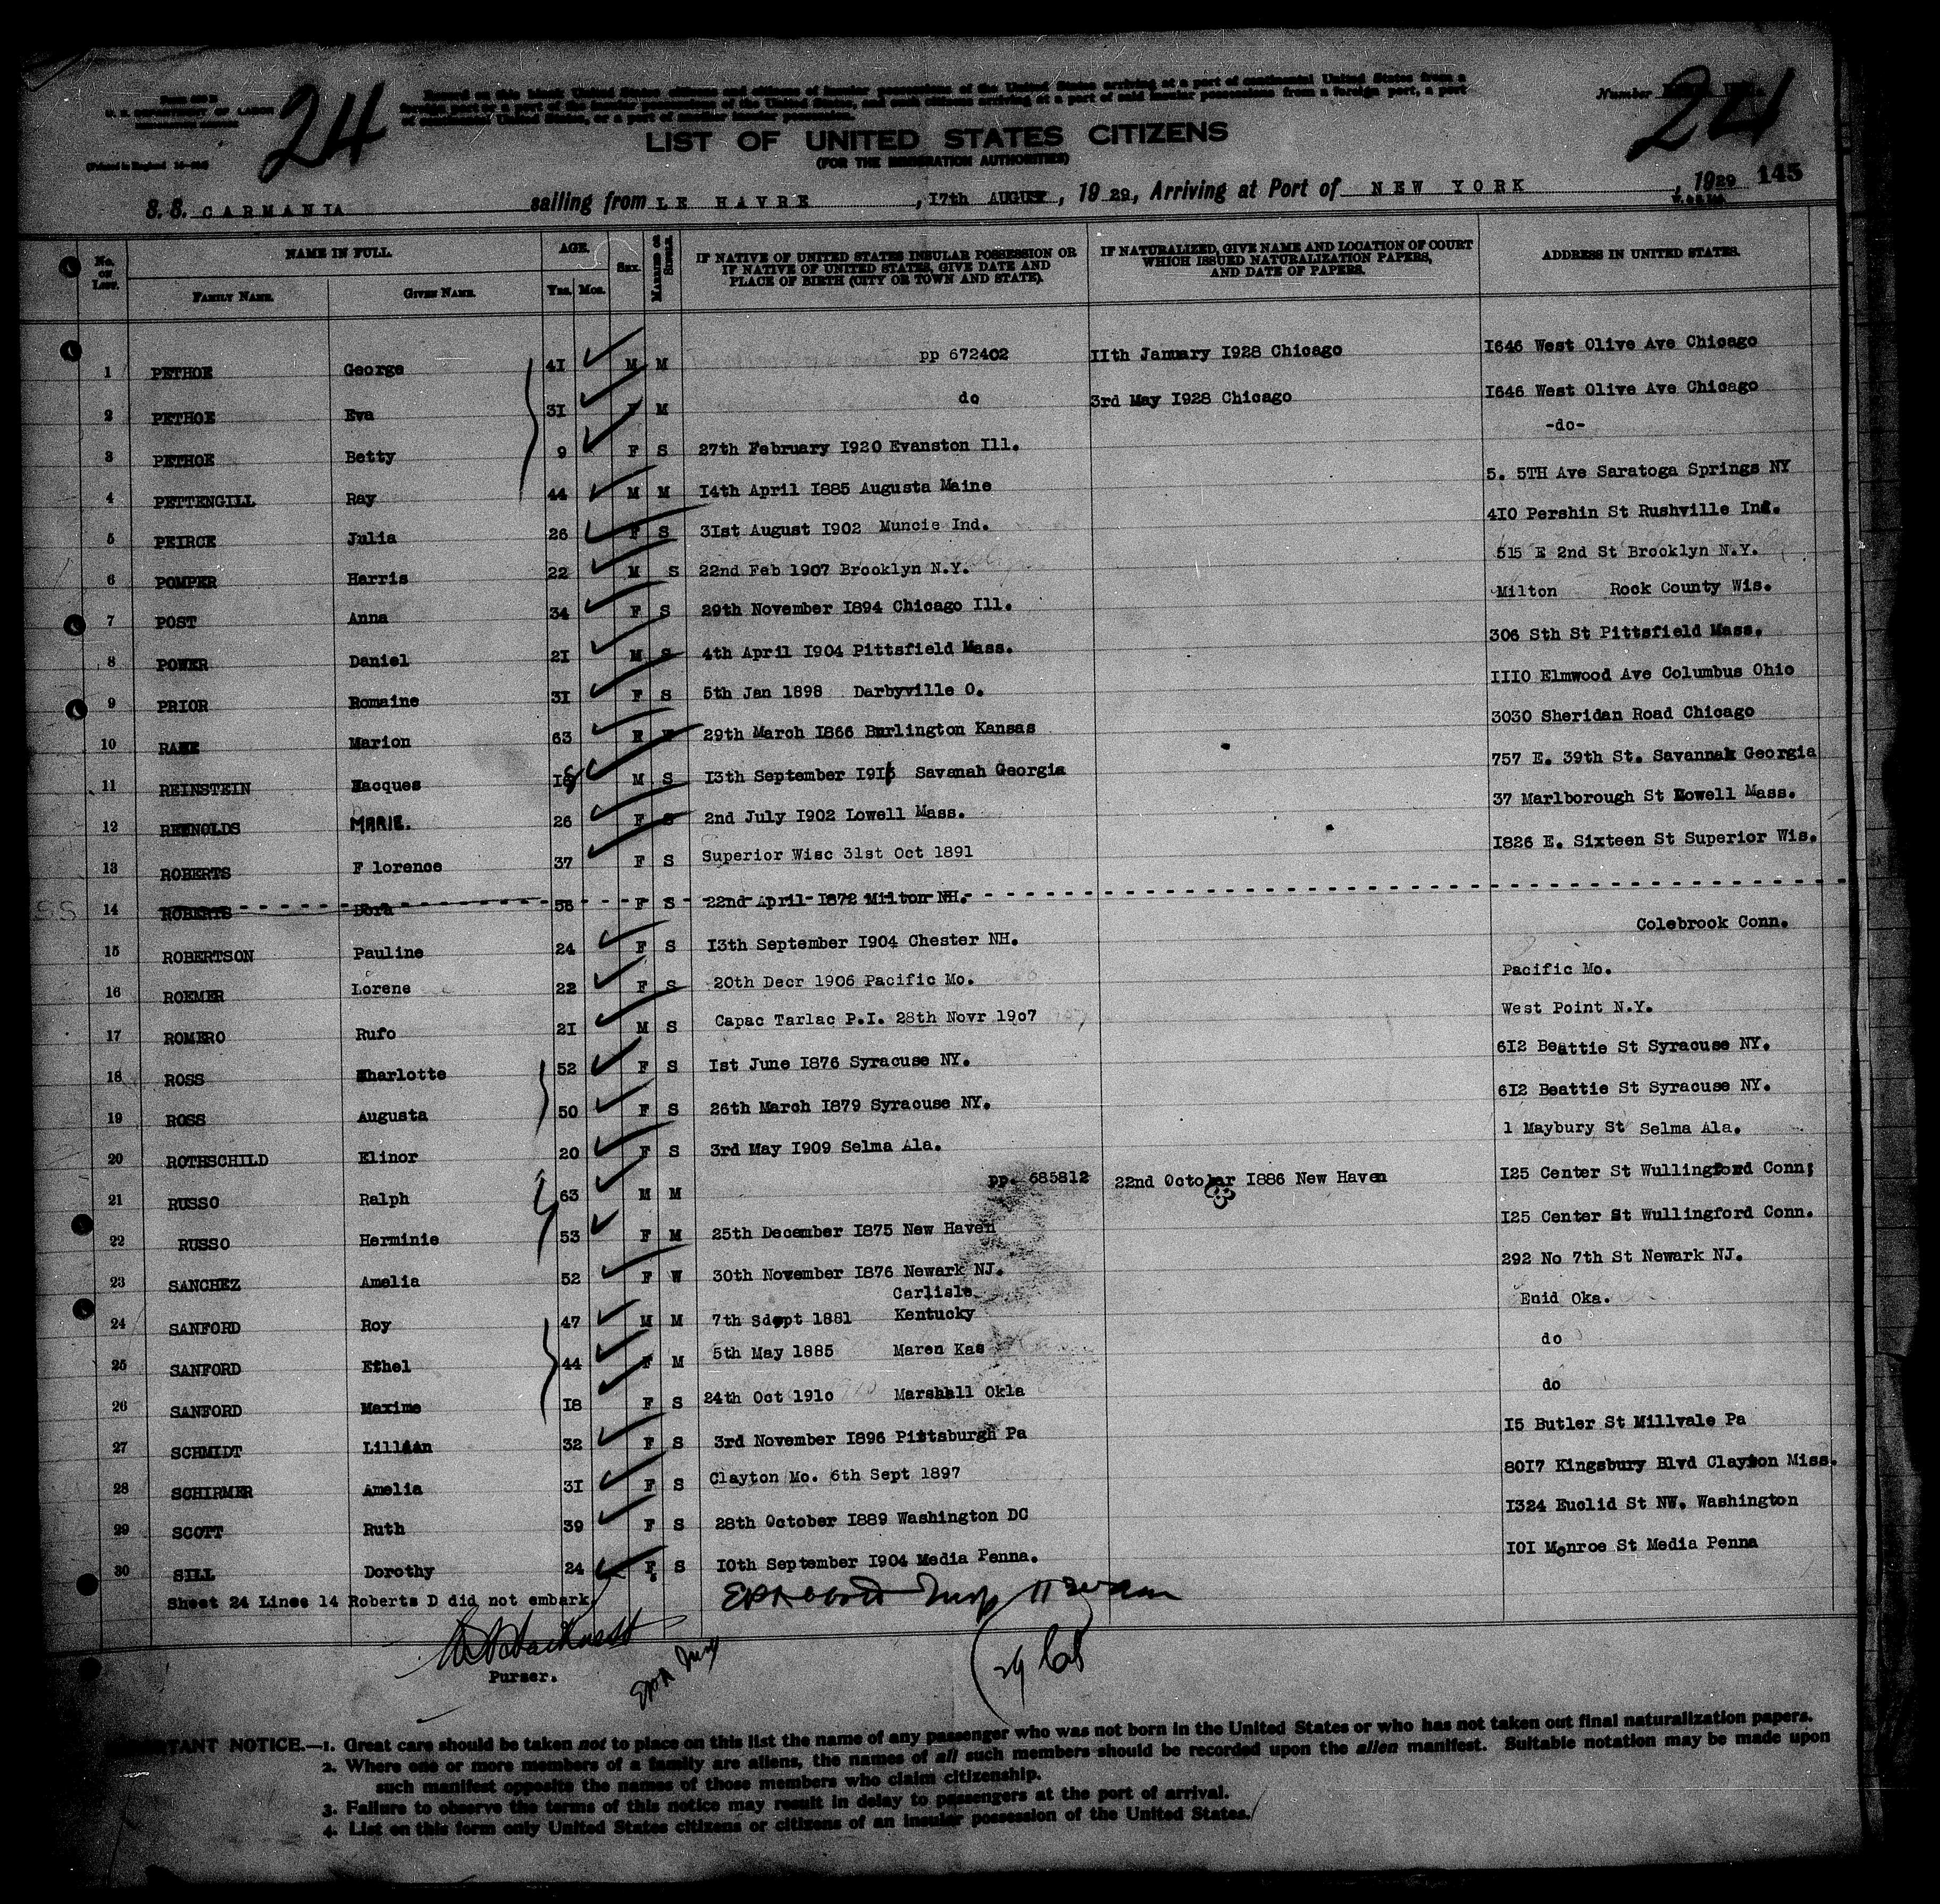 24
24
LIST OF UNITED STATES CITIZENS
(FOR THE IMMIGRATION AUTHORITIES)
Number
145
S.S. CARMANIA sailing from LE HAVRE, 17th AUGUST, 1929, Arriving at Port of NEW YORK, 1929
No. ON LIST. NAME IN FULL. AGE. Sex. MARRIED OR SINGLE. IF NATIVE OF UNITED STATES INSULAR POSSESSION OR IF NATIVE OF UNITED STATES, GIVE DATE AND PLACE OF BIRTH (CITY OR TOWN AND STATE). IF NATURALIZED, GIVE NAME AND LOCATION OF COURT WHICH ISSUED NATURALIZATION PAPERS, AND DATE OF PAPERS. ADDRESS IN UNITED STATES.
FAMILY NAME. GIVEN NAME. Yrs. Mos.
1 PETHOE George 41 M M pp 672402 11th January 1928 Chicago 1646 West Olive Ave Chicago
2 PETHOE Eva 31 F M do 3rd May 1928 Chicago 1646 West Olive Ave Chicago
3 PETHOE Betty 9 F S 27th February 1920 Evanston Ill. -do-
4 PETTENGILL Ray 44 M M 14th April 1885 Augusta Maine 5. 5TH Ave Saratoga Springs NY
5 PEIRCE Julia 26 F S 31st August 1902 Muncie Ind. 410 Pershin St Rushville Ind.
6 POMPER Harris 22 M S 22nd Feb 1907 Brooklyn N.Y. 515 E 2nd St Brooklyn N.Y.
7 POST Anna 34 F S 29th November 1894 Chicago Ill. Milton Rock County Wis.
8 POWER Daniel 21 M S 4th April 1904 Pittsfield Mass. 306 Sth St Pittsfield Mass.
9 PRIOR Romaine 31 F S 5th Jan 1898 Darbyville O. 1110 Elmwood Ave Columbus Ohio
10 Marion 63 F 29th March 1866 Burlington Kansas 3030 Sheridan Road Chicago
11 REINSTEIN Hacques M S 13th September Savanah Georgia 757 E. 39th St. Savannah Georgia
12 REYNOLDS MARIE. 26 F S 2nd July 1902 Lowell Mass. 37 Marlborough St Lowell Mass.
13 ROBERTS F lorence 37 F S Superior Wisc 31st Oct 1891 1826 E. Sixteen St Superior Wis.
14 ROBERTS Dora 56 F S 22nd April 1872 Milton NH.
15 ROBERTSON Pauline 24 F S 13th September 1904 Chester NH. Colebrook Conn.
16 ROEMER Lorene 22 F S 20th Decr 1906 Pacific Mo. Pacific Mo.
17 ROMERO Rufo 21 M S Capac Tarlac P.I. 28th Novr 1907 West Point N.Y.
18 ROSS Charlotte 52 F S 1st June 1876 Syracuse NY. 612 Beattie St Syracuse NY.
19 ROSS Augusta 50 F S 26th March 1879 Syracuse NY. 612 Beattie St Syracuse NY.
20 ROTHSCHILD Elinor 20 F S 3rd May 1909 Selma Ala. 1 Maybury St Selma Ala.
21 RUSSO Ralph 63 M M pp. 685812 22nd October 1886 New Haven 125 Center St Wullingford Conn;
22 RUSSO Herminie 53 F M 25th December 1875 New Haven 125 Center St Wullingford Conn.
23 SANCHEZ Amelia 52 F W 30th November 1876 Newark NJ. 292 No 7th St Newark NJ.
24 SANFORD Roy 47 M M 7th Sdept 1881 Carlisle Kentucky Enid Oka.
25 SANFORD Ethel 44 F M 5th May 1885 Maren Kas do
26 SANFORD Maxime 18 F S 24th Oct 1910 Marshall Okla do
27 SCHMIDT Lillian 32 F S 3rd November 1896 Pittsburgh Pa 15 Butler St Millvale Pa
28 SCHIRMER Amelia 31 F S Clayton Mo. 6th Sept 1897 8017 Kingsbury Blvd Clayton Miss.
29 SCOTT Ruth 39 F S 28th October 1889 Washington DC 1324 Euclid St NW. Washington
30 SILL Dorothy 24 F S 10th September 1904 Media Penna. 101 Monroe St Media Penna
Sheet 24 Lines 14 Roberts D did not embark
Purser.
IMPORTANT NOTICE.—1. Great care should be taken not to place on this list the name of any passenger who was not born in the United States or who has not taken out final naturalization papers.
2. Where one or more members of a family are aliens, the names of all such members should be recorded upon the alien manifest. Suitable notation may be made upon
such manifest opposite the names of those members who claim citizenship.
3. Failure to observe the terms of this notice may result in delay to passengers at the port of arrival.
4. List on this form only United States citizens or citizens of an insular possession of the United States.